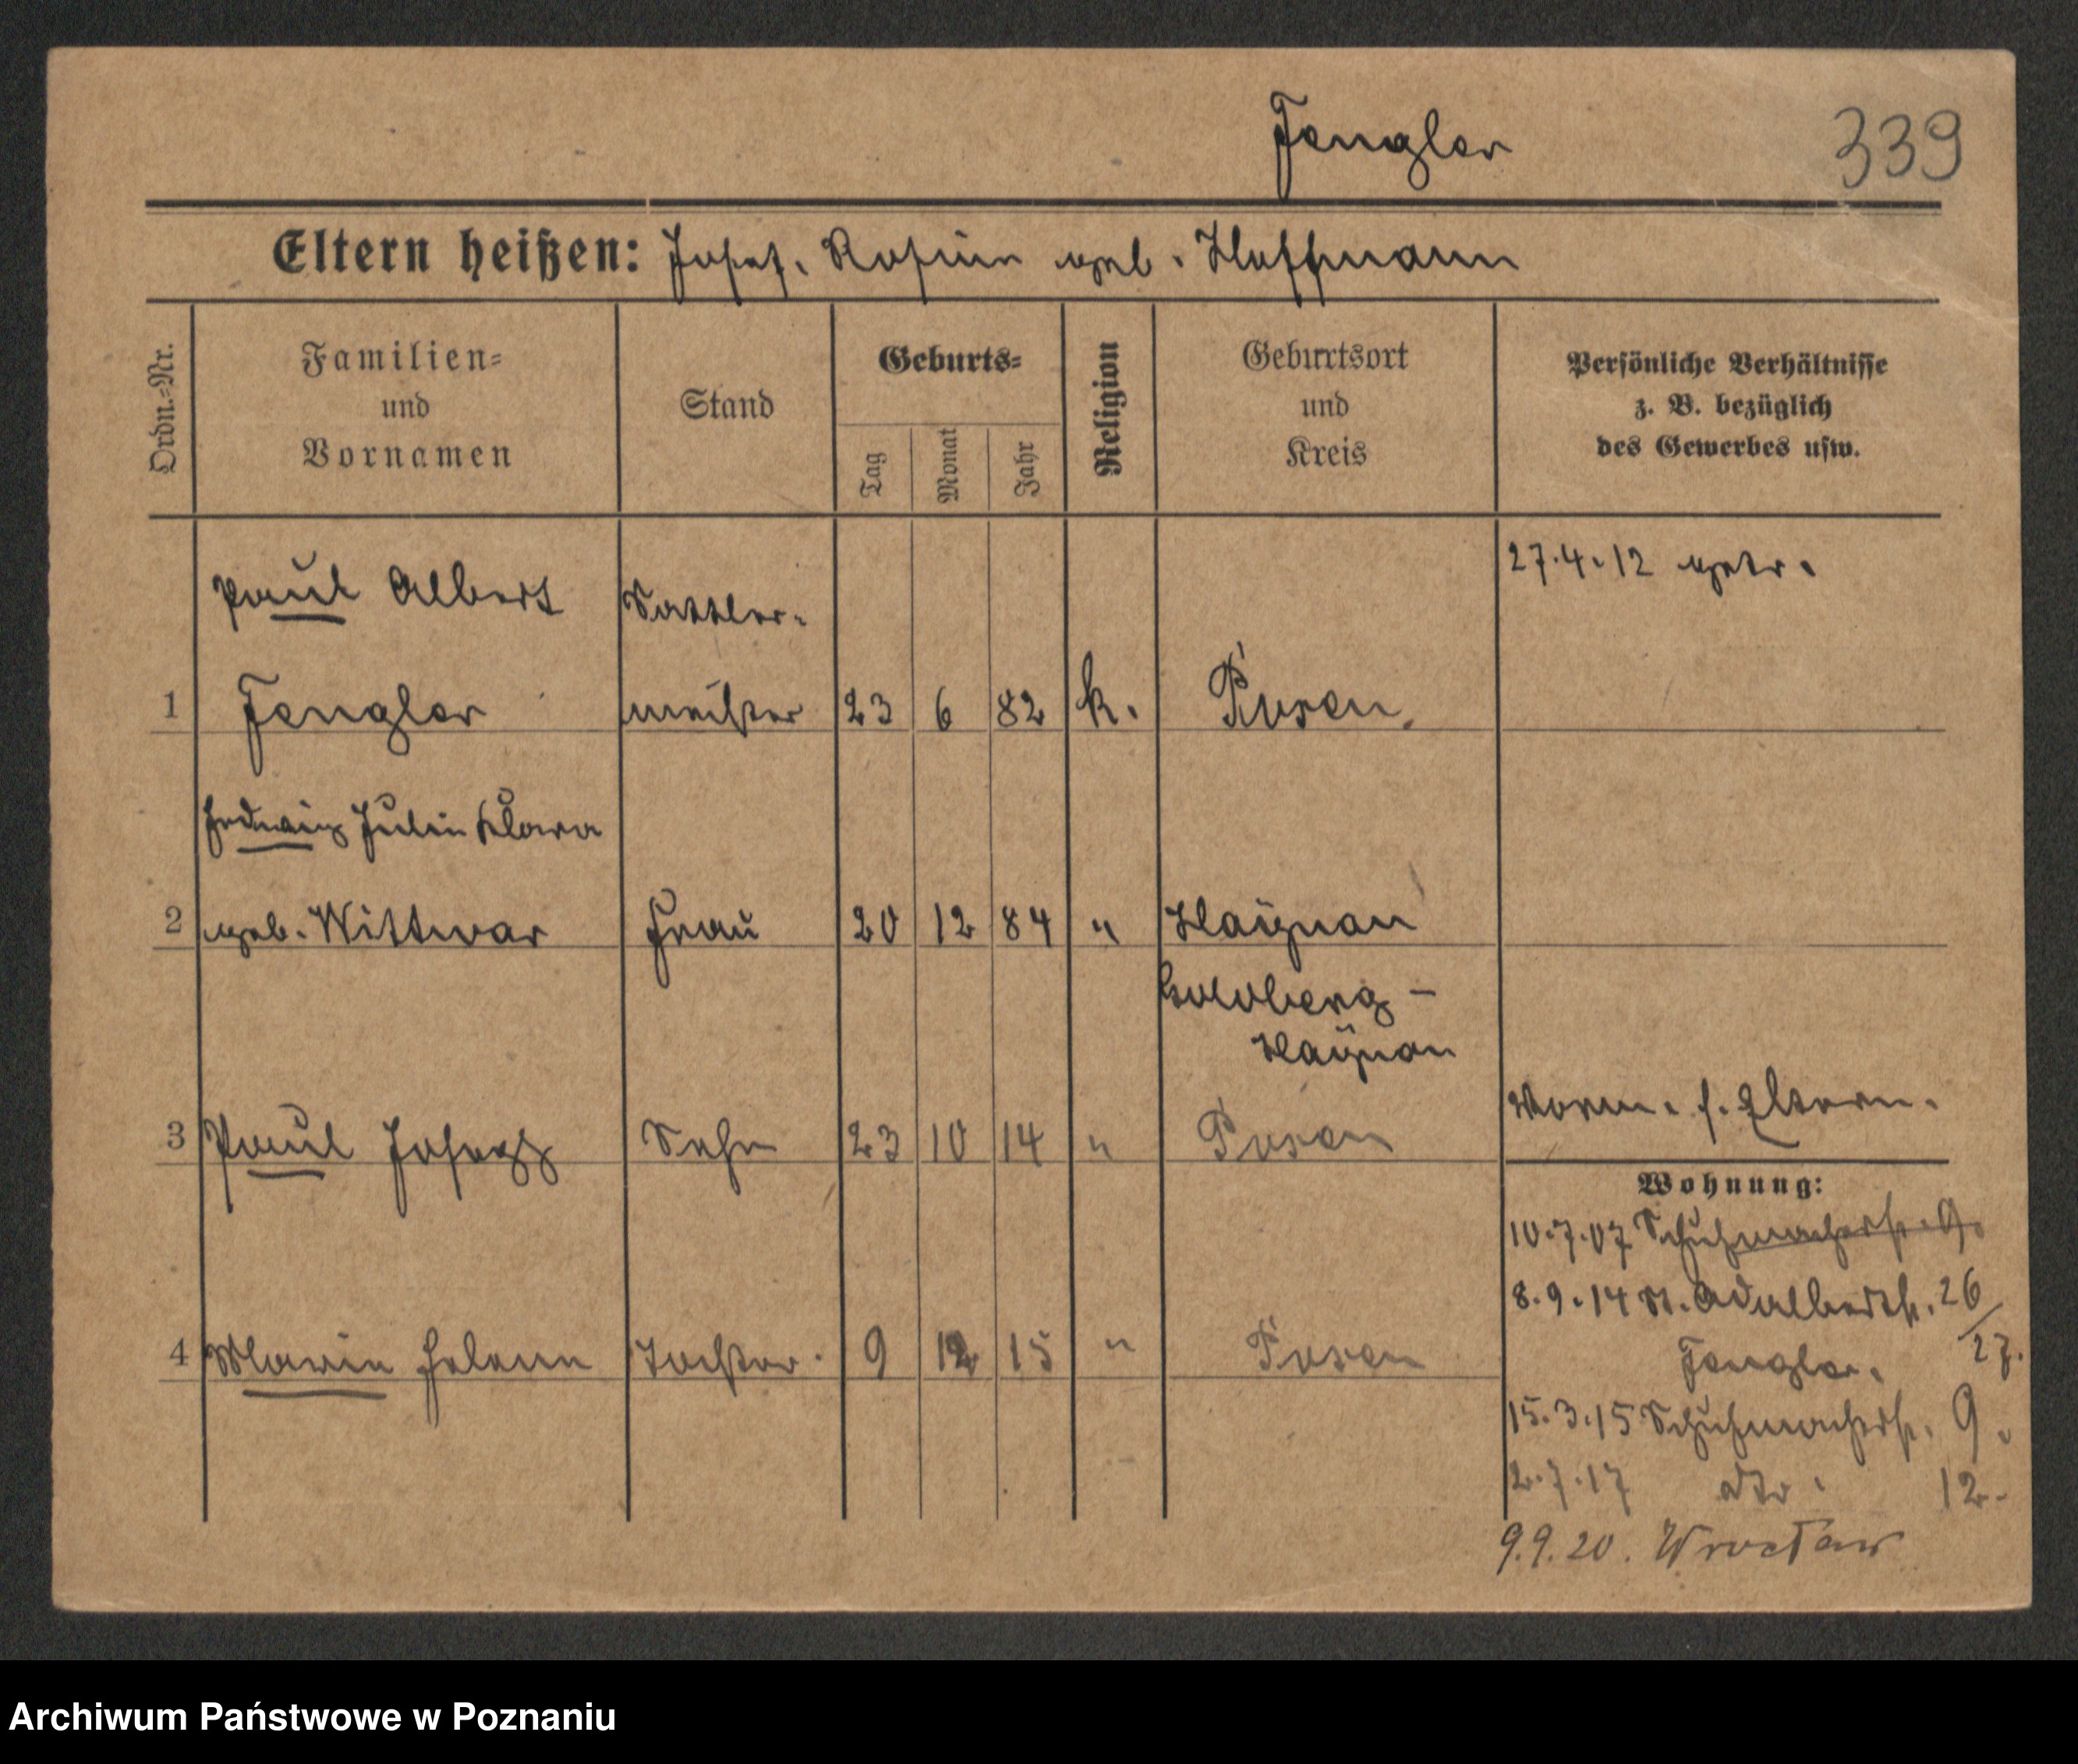 Fengler
339
Eltern heißen: Josef, Rosina geb. Hoffmann
Ordn.=Nr.
Familien=
und
Vornamen
Stand
Geburts=
Tag
Monat
Jahr
Religion
Geburtsort
und
Kreis
Persönliche Verhältnisse
z. B. bezüglich
des Gewerbes usw.
27.4.12 getr.
Paul Albert
Sattler-
1 Fengler meister 23 6 82 k. Posen.
Hedwig Julie Klara
2 geb. Wittwer Frau 20 12 84 " Haynau
Goldberg -
Haynau
Vorm. s. Eltern.
3 Paul Josef Sohn 23 10 14 " Posen
Wohnung:
10.7.07 Schuhmacherstr. 9.
8.9.14 St. Adalbertstr. 26/27.
4 Maria Helene Tochter. 9 12 15 " Posen
Fengler.
15.3.15 Schuhmacherstr. 9.
2.7.17 dto. 12.
9.9.20. Wrocław
Archiwum Państwowe w Poznaniu